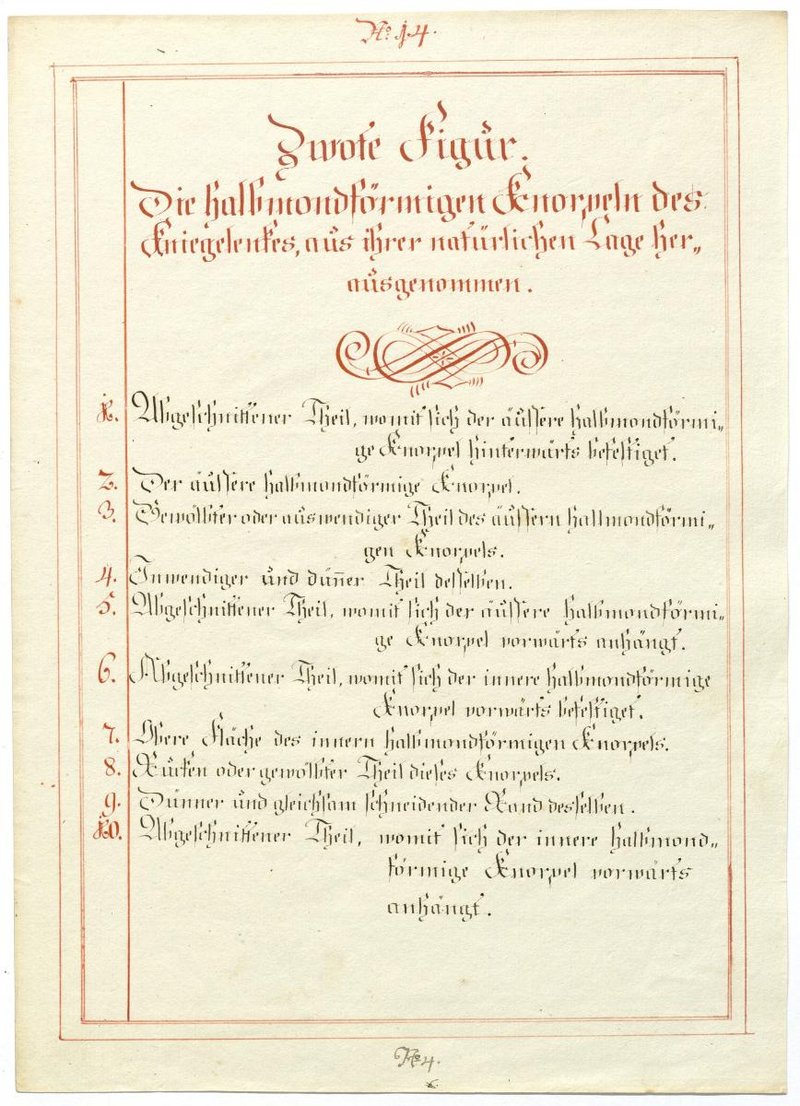 No. 14.
Zwote Figur.
Die halbmondförmigen Knorpeln des
Kniegelenkes, aus ihrer natürlichen Lage her„
ausgenommen.
1. Abgeschnittener Theil, womit sich der äussere halbmondförmi„
ge Knorpel hinterwärts befestiget.
2. Der äussere halbmondförmige Knorpel.
3. Gewölbter oder auswendiger Theil des äussern halbmondförmi„
gen Knorpels.
4. Inwendiger und dün̄er Theil desselben.
5. Abgeschnittener Theil, womit sich der äussere halbmondförmi„
ge Knorpel vorwärts anhängt.
6. Abgeschnittener Theil, womit sich der innere halbmondförmige
Knorpel vorwärts befestiget.
7. Obere Fläche des innern halbmondförmigen Knorpels.
8. Rücken oder gewölbter Theil dieses Knorpels.
9. Dünner und gleichsam schneidender Rand desselben.
10. Abgeschnittener Theil, womit sich der innere halbmond„
förmige Knorpel vorwärts
anhängt.
No. 4.